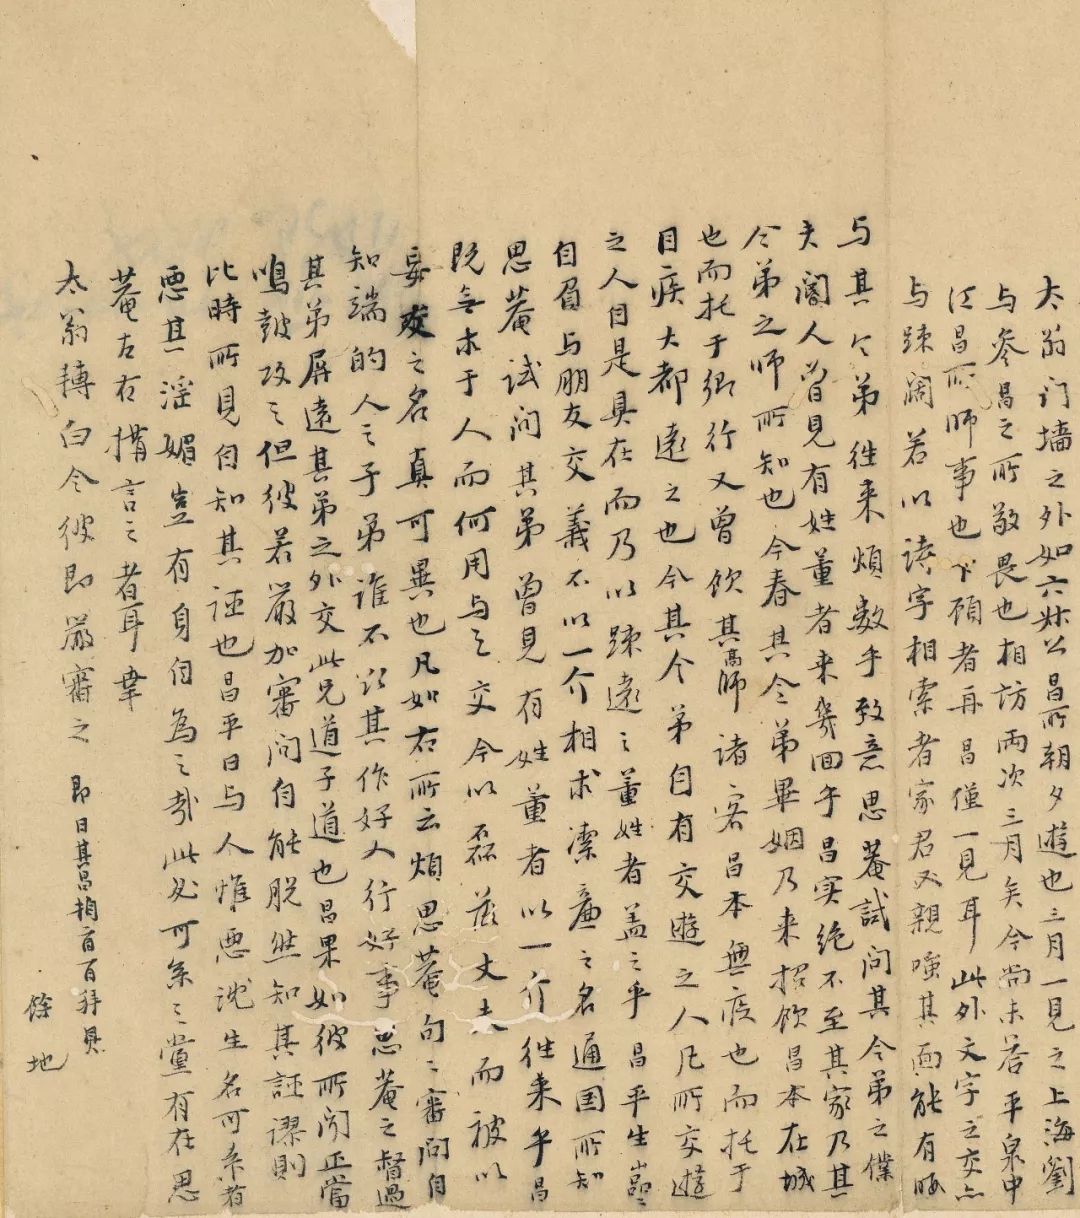 太翁门墙之外如六妹公昌所朝夕遊也三月一見之上海劉
与參昌之所敬畏也相访兩次三月矣今尚未荅平泉中
江昌所师事也下顾者再昌僅一見耳此外文字之交亦
与踈阔若以诗字相索者家君又親嗤其面能有
与其令弟往来煩數乎致意思菴試问其令弟之僕
夫閽人曾見有姓董者来幾回乎昌实绝不至其家乃其
令弟之师所知也今春其令弟畢姻乃来招飲昌本在城
也而托于鄉行又曾飲其高师諸客昌本無疾也而托于
目疾大都遠之也今其令弟自有交遊之人凡所交遊
之人目是具在而乃以踈遠之董姓者盖之乎昌平生
自眉与朋友交義不以一介相求潔廉之名通国所知
思菴試问其弟曾見有姓董者以一介往来乎昌
既無求于人而何用与之交今以磊落丈夫而被以
妄之名真可異也凡如右所云煩思菴句句審问自
知端的人之子弟谁不欲其作好人行好事思菴之督過
其弟屏遠其弟之外交此兄道子道也昌果如彼所闻正當
鳴鼓攻之但彼若嚴加審问自能脱然知其誣謬則
比時所見自知其誣也昌平日与人惟惡沈生名可系者
惡其淫媚豈有身自為之哉此必可系之黨有在思
菴左右搆言之者耳幸
太翁轉白令彼即嚴審之 即日其昌頓首百拜具
餘地